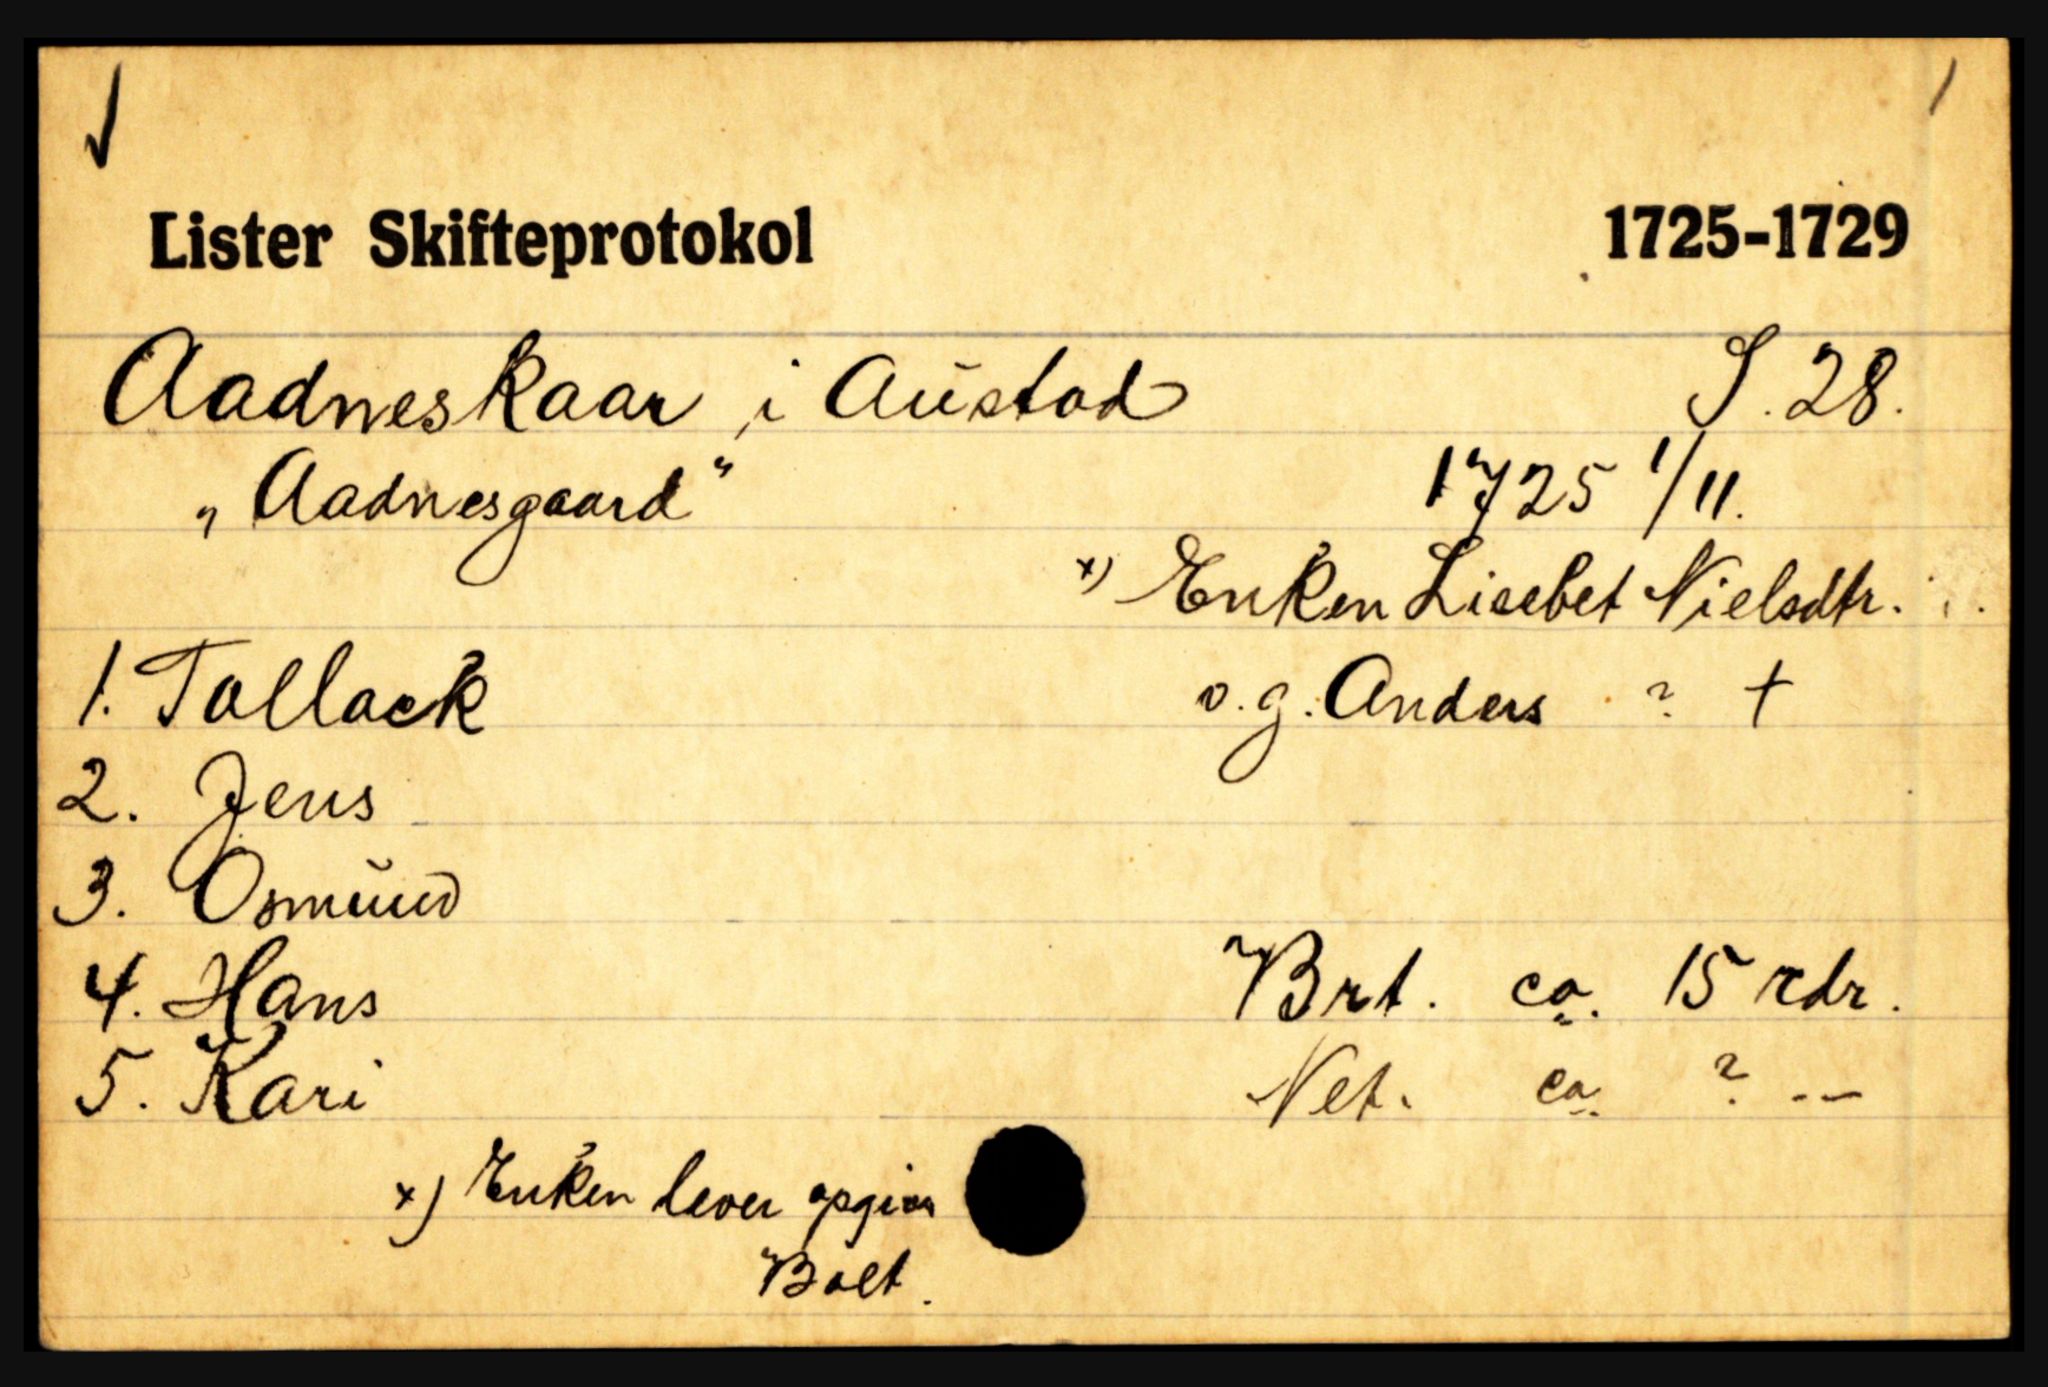 1
Lister Skifteprotokol 1725-1729
Aadneskaar i Austad S. 28.
"Aadnesgaard" 1725 1/11.
x) Enken Lisebet Nielsdtr.
1. Tollack v. g. Anders ? †
2. Jens
3. Osmund
4. Hans Brt. ca. 15 rdr.
5. Kari Net. ca. ? --
x) Enken lever opgior
Boet.